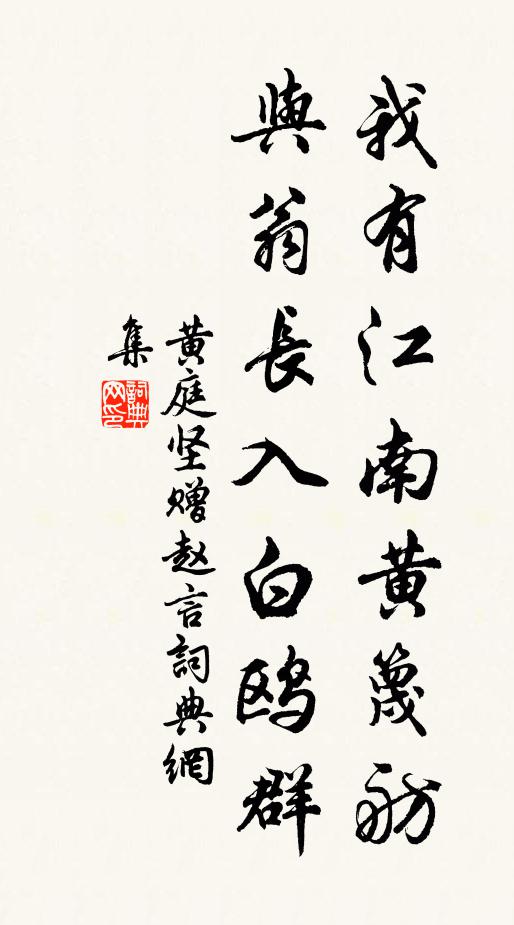 我有江南黄篾舫
與翁長入白鸥群
黄庭坚赠赵言詞典網
集
詞典
网印